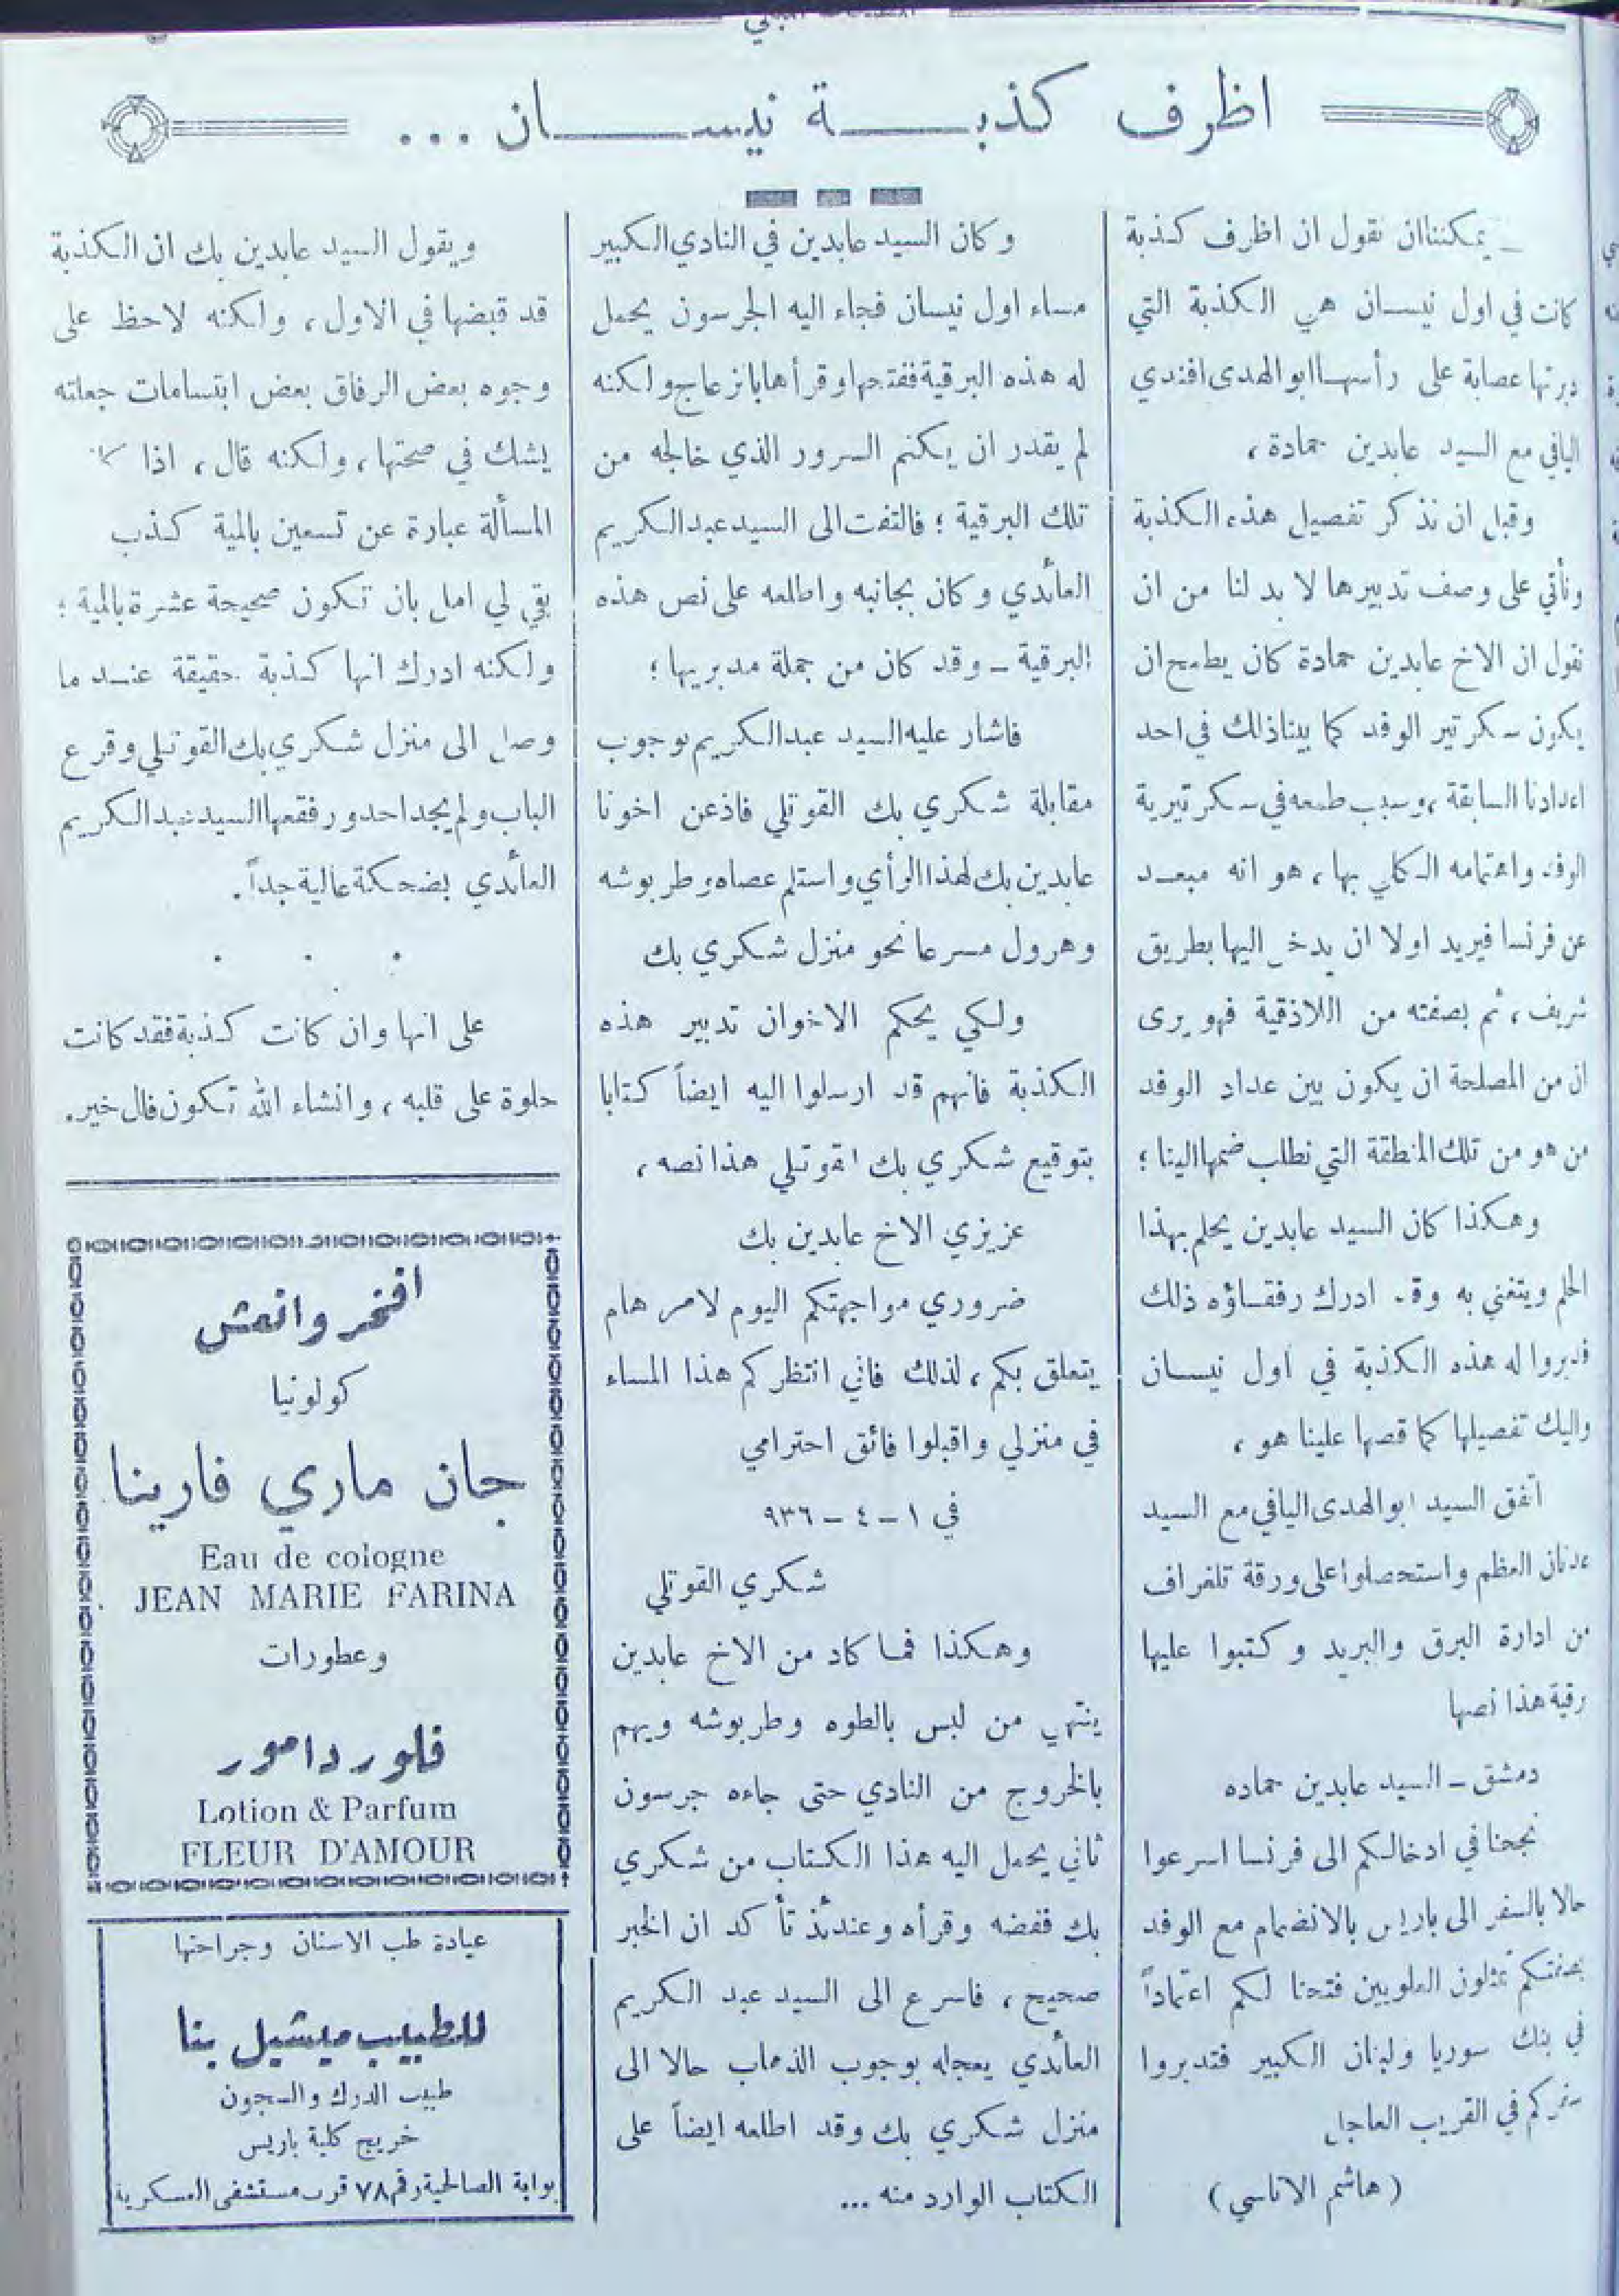 اظرف كذبـــة نيســـان ...
يمكنناان نقول ان اظرف كذبة
كانت في اول نيسان هي الكذبة التي
دبرتها عصابة على رأسها ابو الهدى افندي
اليافي مع السيد عابدين حمادة ،
وقبل ان نذكر تفصيل هذه الكذبة
ونأتي على وصف تدبيرها لا بد لنا من ان
نقول ان الاخ عابدين حمادة كان يطمح ان
يكون سكرتير الوفد كما بينا ذلك في احد
اعدادنا السابقة ، وسبب طمعه في سكرتيرية
الوفد واهتمامه الكلي بها ، هو انه مبعد
عن فرنسا فيريد اولا ان يدخل اليها بطريق
شريف ، ثم بصفته من اللاذقية فهو يرى
ان من المصلحة ان يكون بين عداد الوفد
من هو من تلك المنطقة التي نطلب ضمها الينا ؛
وهكذا كان السيد عابدين يحلم بهذا
الحلم ويتغنى به وقد ادرك رفقاؤه ذلك
فدبروا له هذه الكذبة في اول نيسان
واليك تفصيلها كما قصها علينا هو ،
اتفق السيد ابو الهدى اليافي مع السيد
عدنان العظم واستحصلوا على ورقة تلغراف
من ادارة البرق والبريد وكتبوا عليها
رقية هذا نصها
دمشق – السيد عابدين حماده
نجحنا في ادخالكم الى فرنسا اسرعوا
حالا بالسفر الى باريس بالانضمام مع الوفد
بصفتكم تمثلون العلويين فتحنا لكم اعتماداً
في بنك سوريا ولبنان الكبير فتدبروا
سفركم في القريب العاجل
( هاشم الاتاسي )
وكان السيد عابدين في النادي الكبير
مساء اول نيسان فجاء اليه الجرسون يحمل
له هذه البرقية ففتحها وقرأها بانزعاج ولكنه
لم يقدر ان يكتم السرور الذي خالجه من
تلك البرقية ؛ فالتفت الى السيد عبد الكريم
العائدي وكان بجانبه واطلعه على نص هذه
البرقية – وقد كان من جملة مدبريها ؛
فاشار عليه السيد عبد الكريم بوجوب
مقابلة شكري بك القوتلي فاذعن اخونا
عابدين بك لهذا الرأي واستلم عصاه وطربوشه
وهرول مسرعا نحو منزل شكري بك
ولكي يحكم الاخوان تدبير هذه
الكذبة فانهم قد ارسلوا اليه ايضاً كتابا
بتوقيع شكري بك القوتلي هذا نصه ،
عزيزي الاخ عابدين بك
ضروري مواجهتكم اليوم لامر هام
يتعلق بكم ، لذلك فاني انتظركم هذا المساء
في منزلي واقبلوا فائق احترامي
في ١ – ٤ – ٩٣٦
شكري القوتلي
وهكذا فما كاد من الاخ عابدين
ينتهي من لبس بالطوه وطربوشه ويهم
بالخروج من النادي حتى جاءه جرسون
ثاني يحمل اليه هذا الكتاب من شكري
بك ففضه وقرأه وعندئذ تأكد ان الخبر
صحيح ، فاسرع الى السيد عبد الكريم
العائدي يعجله بوجوب الذهاب حالا الى
منزل شكري بك وقد اطلعه ايضاً على
الكتاب الوارد منه ...
ويقول السيد عابدين بك ان الكذبة
قد قبضها في الاول ، ولكنه لاحظ على
وجوه بعض الرفاق بعض ابتسامات جعلته
يشك في صحتها ، ولكنه قال ، اذا
المسألة عبارة عن تسعين بالمية كذب
بقي لي امل بان تكون صحيحة عشرة بالمية ؛
ولكنه ادرك انها كذبة حقيقة عند ما
وصل الى منزل شكري بك القوتلي وقرع
الباب ولم يجد احد ورفقعها السيد عبد الكريم
العائدي بضحكة عالية جداً .
. . .
على انها وان كانت كذبة فقد كانت
حلوة على قلبه ، وانشاء الله تكون فال خير .
افخر وانعش
كولونيا
جان ماري فارينا
Eau de cologne
JEAN MARIE FARINA
وعطورات
فلور دامور
Lotion & Parfum
FLEUR D'AMOUR
عيادة طب الاسنان وجراحتها
للطبيب ميشيل بنا
طبيب الدرك والسجون
خريج كلية باريس
بوابة الصالحية رقم ٧٨ قرب مستشفى العسكرية